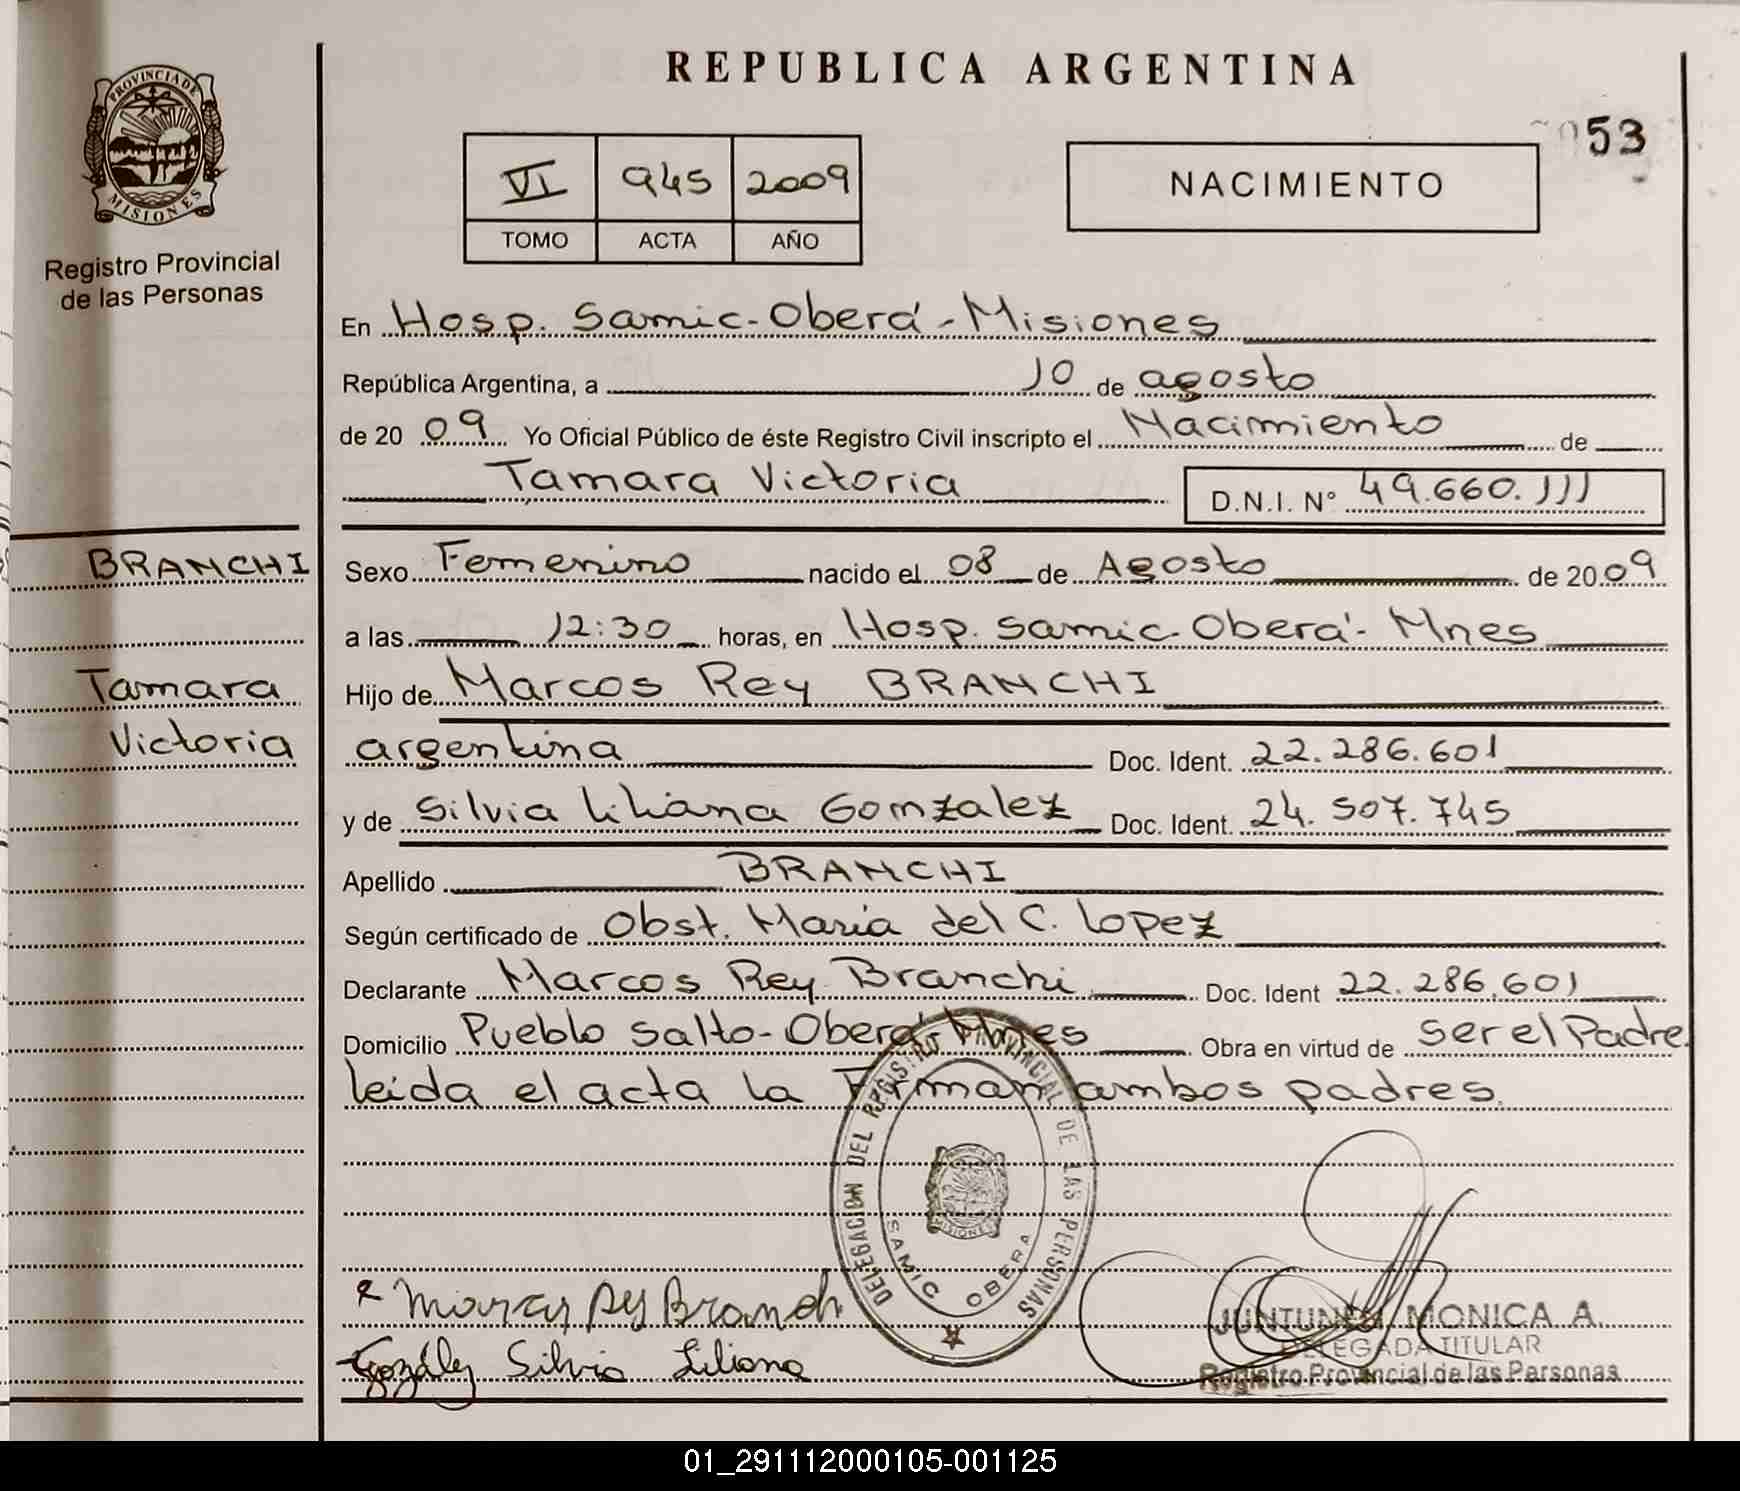 REPUBLICA ARGENTINA
53
PROVINCIA DE
MISIONES
Registro Provincial
de las Personas
VI 945 2009
TOMO ACTA AÑO
NACIMIENTO
En Hosp. Samic-Oberá-Misiones
República Argentina, a 10 de agosto
de 20 09 Yo Oficial Público de éste Registro Civil inscripto el Nacimiento de
Tamara Victoria D.N.I. N° 49.660.111
BRANCHI
Tamara
Victoria
Sexo Femenino nacido el 08 de Agosto de 20 09
a las 12:30 horas, en Hosp. Samic-Oberá-Mnes
Hijo de Marcos Rey BRANCHI
argentina Doc. Ident. 22.286.601
y de Silvia Liliana Gonzalez Doc. Ident. 24.507.745
Apellido BRANCHI
Según certificado de Obst. Maria del C. Lopez
Declarante Marcos Rey Branchi Doc. Ident 22.286.601
Domicilio Pueblo Salto-Oberá Mnes Obra en virtud de ser el Padre.
leida el acta la Firman ambos padres.
DELEGACION DEL REGISTRO PROVINCIAL DE LAS PERSONAS
MISIONES
SAMIC OBERA
Marcos Rey Branchi
Gozález Silvia Liliana
MONICA A.
DELEGADA TITULAR
Registro Provincial de las Personas
01_291112000105-001125